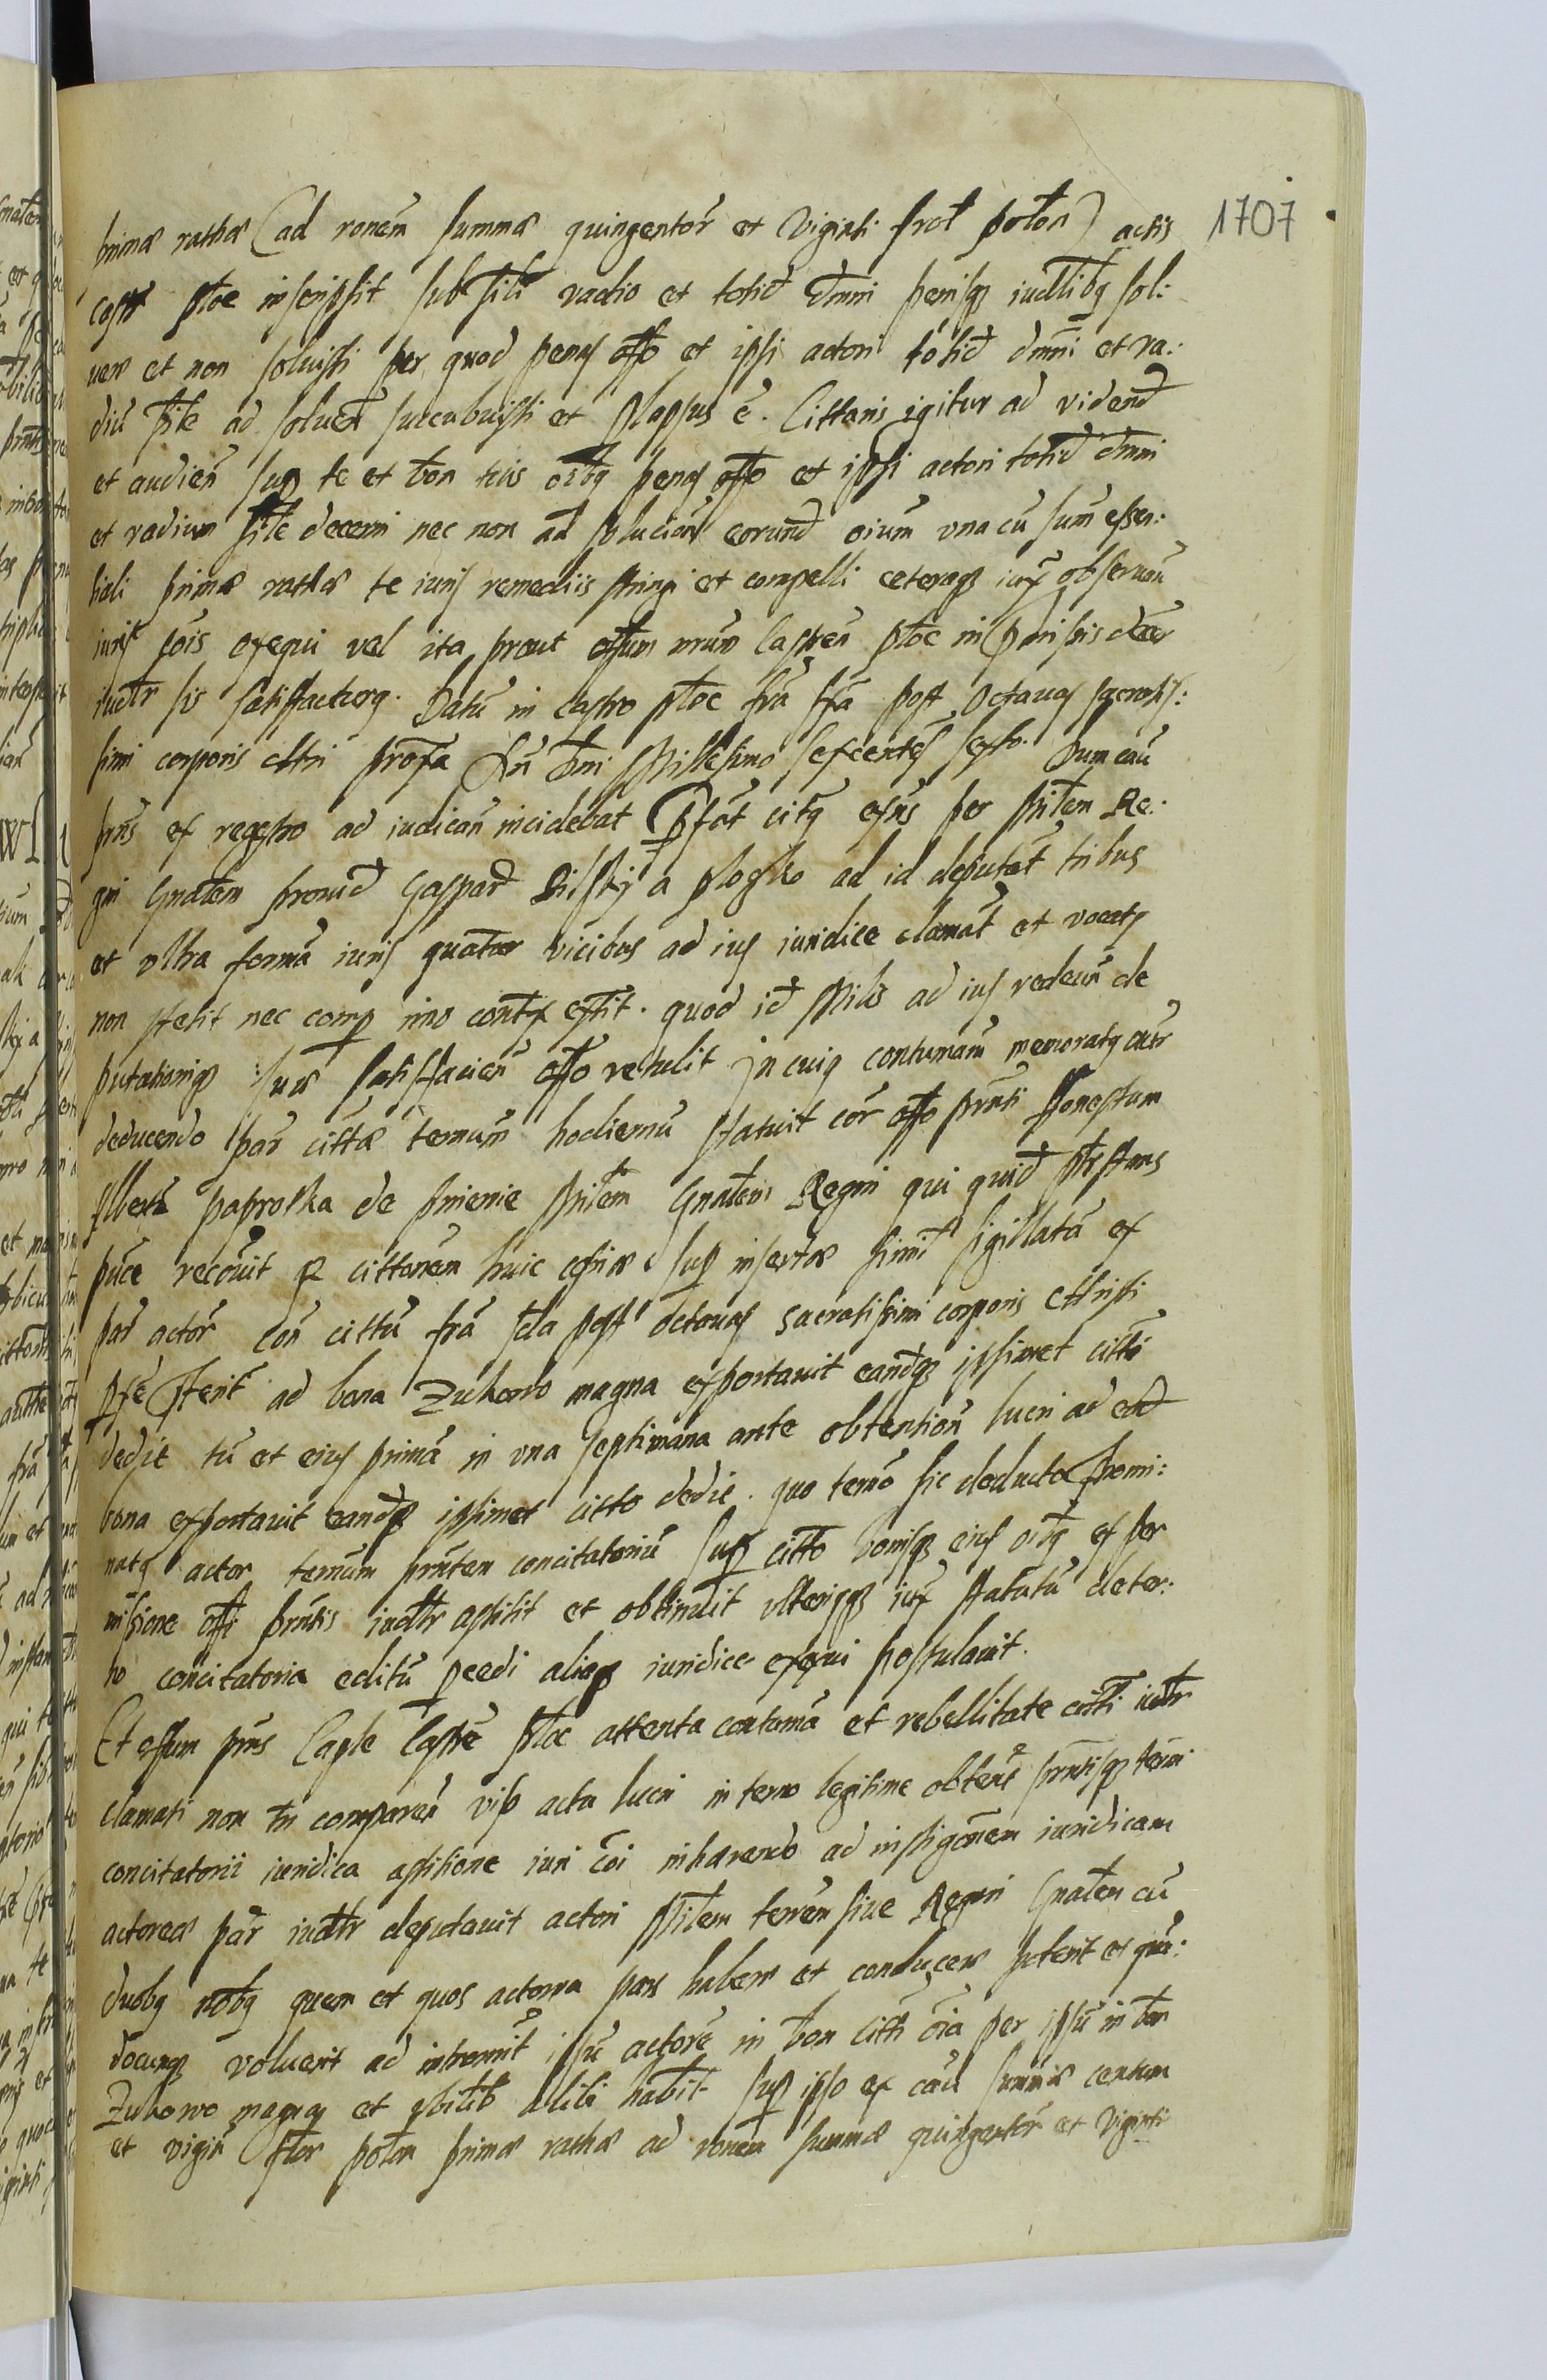 1707
primæ rathæ (ad ronem summæ quingentor et viginti flor polon) actis
castr ploc inscripsit sub simili vadio et totid damni penisq iudlibq sol:
uere et non soluisti per quod penas offo et ipsi actori totid damni et va:
diu sile ad soluen succubuisti et plapsus e. Cittaris igitur ad videnđ
et audien sup te et bon tuis oibq penas offo et ipsi actori totid damni
et vadium sile decerni nec non ad solucion eorund oium vna cu sum essen:
tiali primæ rathæ te iuris remediis stringi et compelli ceteraq iux obseruan
iuris cois exequi vel ita prout offum nrum castren ploc in pmissis decer
iudlr sis satisfacturq. Datu in castro ploc fra post octauas sacratis:
simi corporis chri proxa An Dni Millesimo sexcentes sexto. Dum cau
pns ex regestro ad iudican incidebat Pfat citq exns per Mitem Re:
gni Gnalem prouid Gaspar a ad id deputat tribus
et vltra forma iuris quatuor vicibus ad ius iuridice clamat et vocatq
non stetit nec comp imo contx extit. quod id Milis ad ius redeun de
putationisq suæ satisfacien offo retulit In cuiq contumam memoratq actr
deducendo par cittæ termum hodiernu statuit cor offo prnti Honestum
paprotka de Mitem Gnalem Regni qui quid
puce recouit q cittonem huic sup insertæ simit sigillata ex
par actor con cittu fra 2da post octauas sacratissimi corporis christi
ad bona Zukowo magna exportauit eandq ipsimet citto
dedit tu et eius prima in vna septimana ante obtention lucri ad ead
bona exportauit eandq ipsimet citto dedit. quo termo sic deducto pnomi:
natq actor termum prntem concitatoriu sup citto bonisq eius oibq ex per
missione offi prntis iudlr astitit et obtinuit vlteriusq iux statutu de ter:
no concitatoria editu pcedi aliaq iuridice exequi postulauit.
Et offum pns Caple Castrē ploc attenta contuma et rebellitate citti iudlr
clamati non tn comparen viso actu lucri in termo legitime obtent prntisq termi
concitatorii iuridica astitione iuri coi inhærendo ad instigonem iuridicam
actoreæ par iudlr deputauit actori Mitem terrēm siue Regni Gnalem cu
duobq nobq quem et quos actorea pars habere et conducere poterit et quan:
docunq voluerit ad intromit ipsu actore in bon citti oia per ipsu in bon
Zukowo magna et vbilib alibi habit sup ipso ex cau summæ centum
et vigin flor polon primæ rathæ ad ronem summæ quingentor et viginti